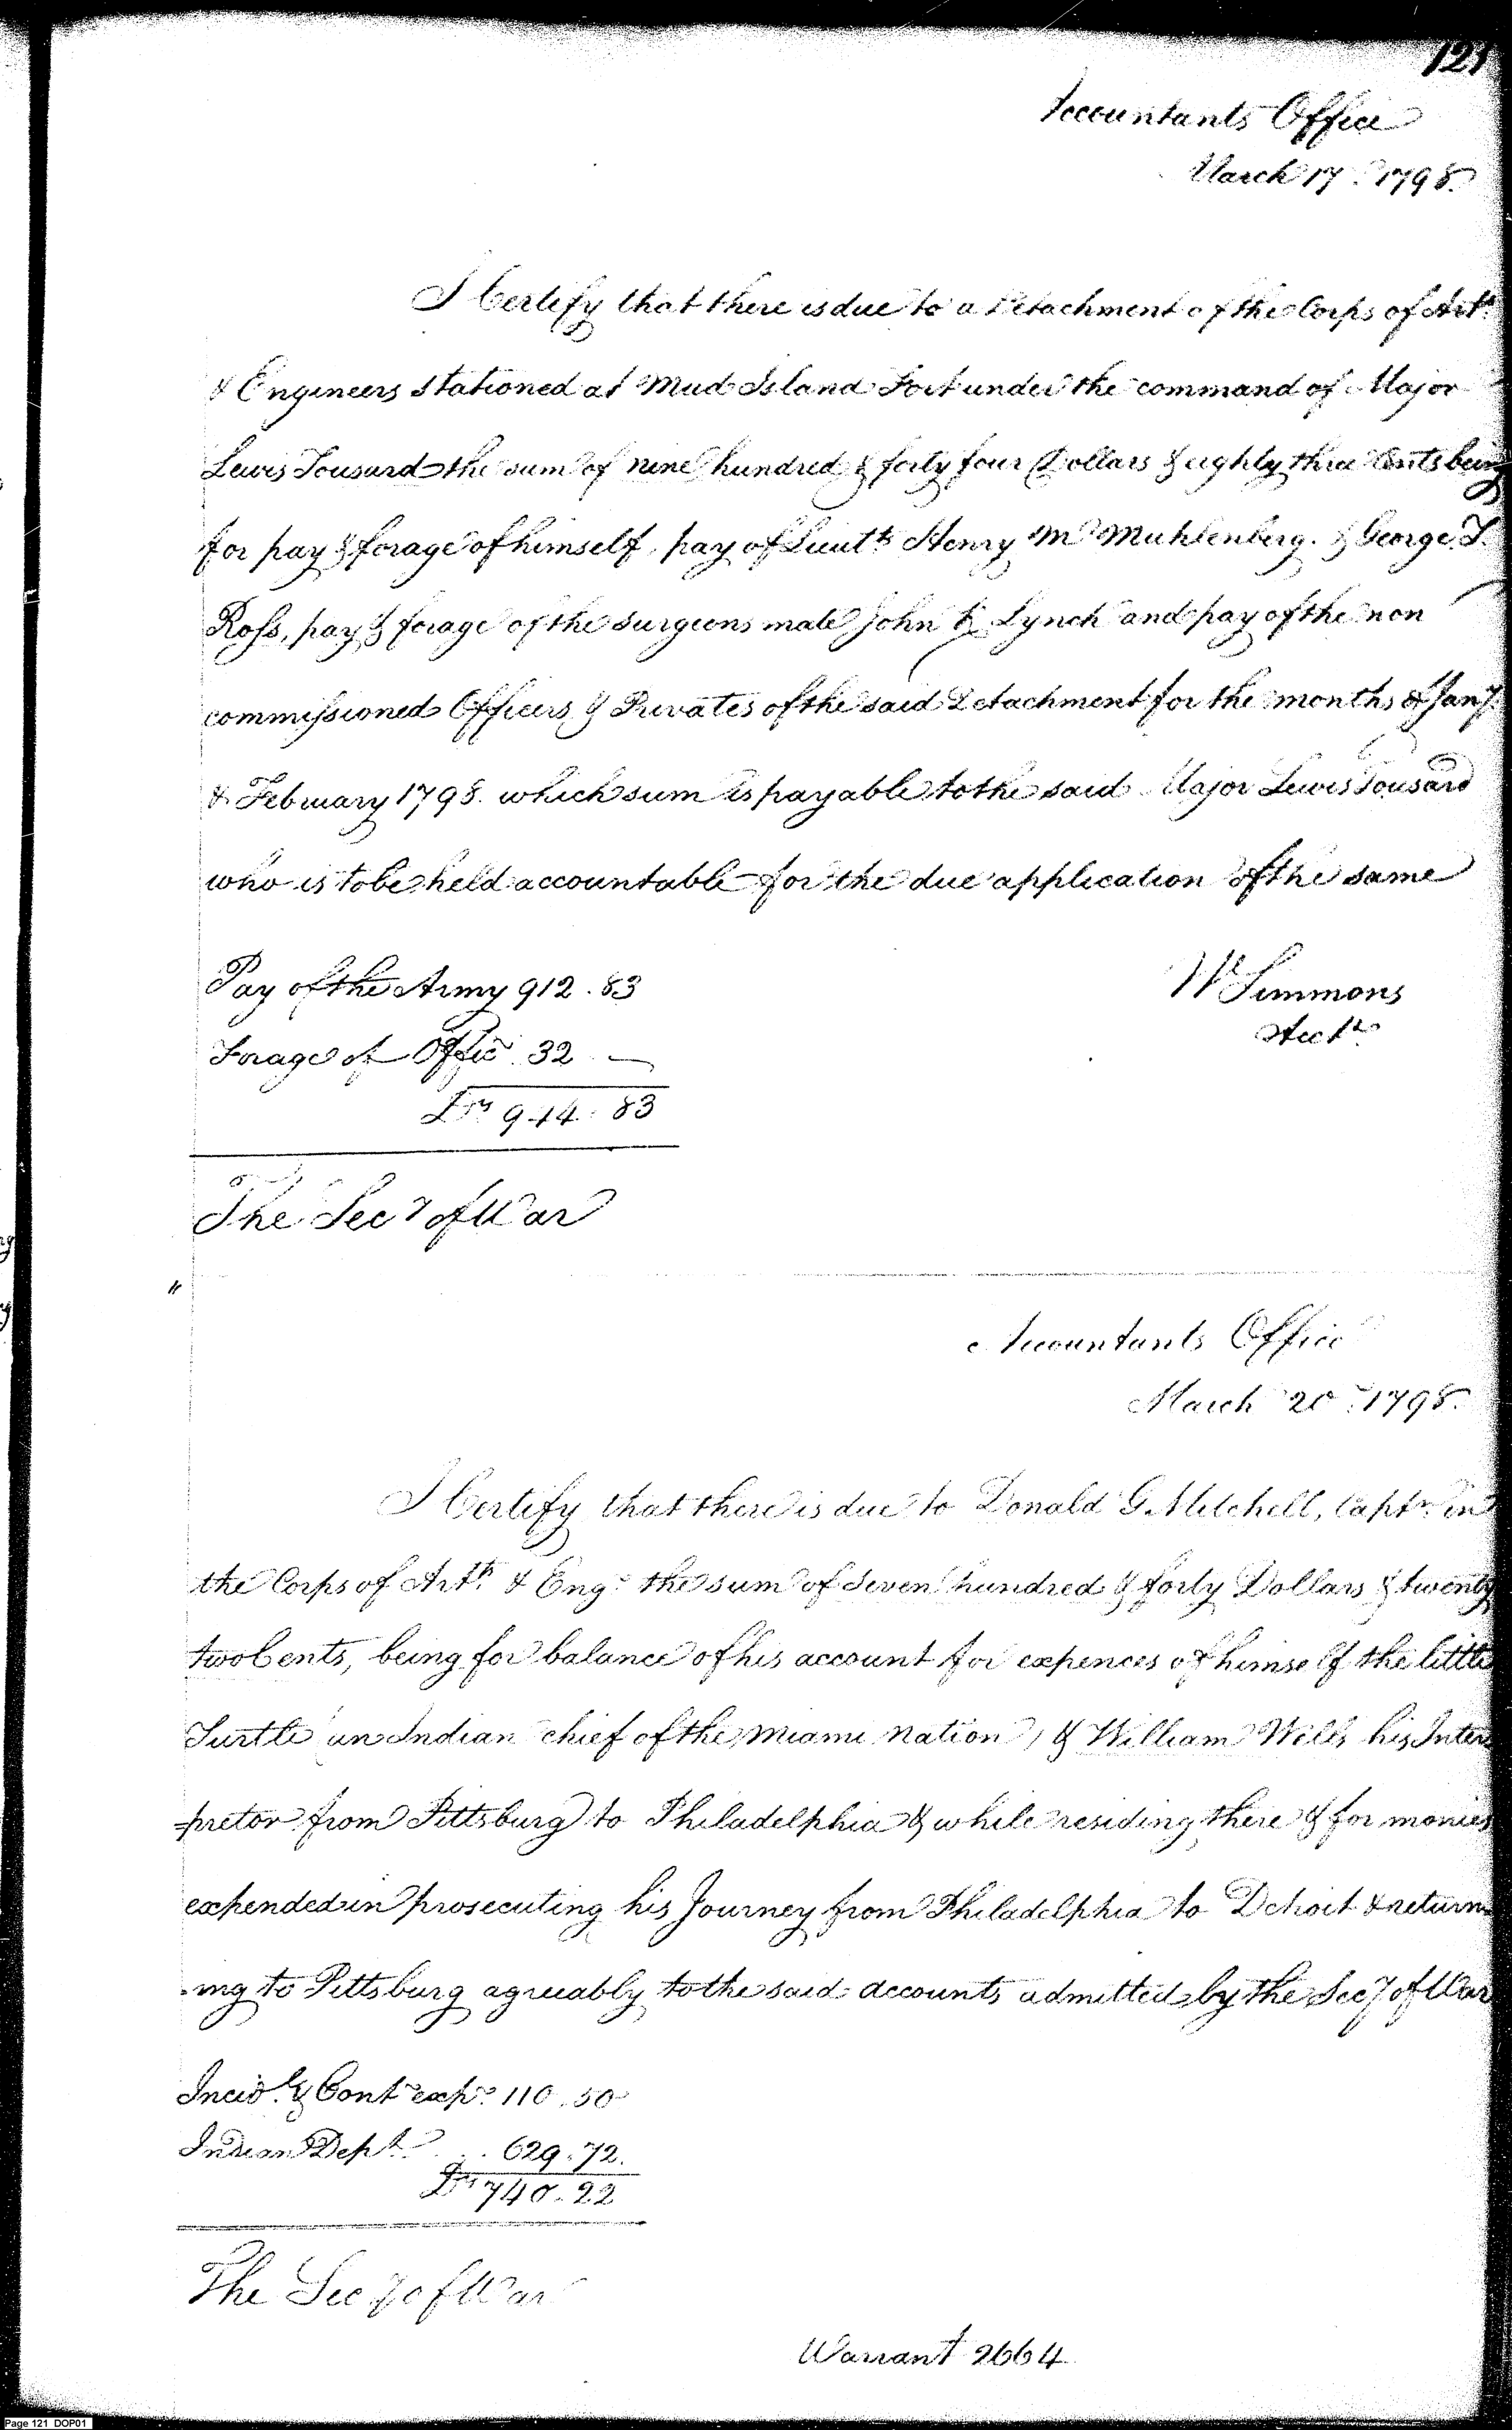 121
Accountants Office
March 17th 1798.
I Certify that there is due to a Detachment of the Corps of Arty
& Engineers stationed at Mud Island Fort under the command of Major
Lewis Tousard the sum of nine hundred & forty four Dollars & eighty three Cents being
for pay & forage of himself, pay of Lieuts Henry M Muhlenberg. & George T.
Ross, pay & forage of the surgeons mate John K Lynch and pay of the non
commissioned Officers & Privates of the said Detachment for the months of Jany
& February 1798. which sum is payable to the said Major Lewis Tousard
who is to be held accountable for the due application of the same
Pay of the Army 912.83
W Simmons
Forage of Offic 32 —
Acct
Drs 944.83
The Secy of War
"
Accountants Office
March 20th 1798.
I Certify that there is due to Donald G. Mitchell, Captn in
the Corps of Arty & Engs the sum of Seven hundred & forty Dollars & twenty
two Cents, being for balance of his account for expences of himself the little
Turtle an Indian chief of the Miami nation, & William Wells his Inter
=pretor from Pittsburg to Philadelphia & while residing there & for monies
expended in prosecuting his Journey from Philadelphia to Detroit & return
-ing to Pittsburg agreeably to the said accounts admitted by the Secy of War
Incidl & Cont exps 110.50
Indian Dept .. 629.72.
Drs 740.22
The Secy of War
Warrant 2664
Page 121 DOP01